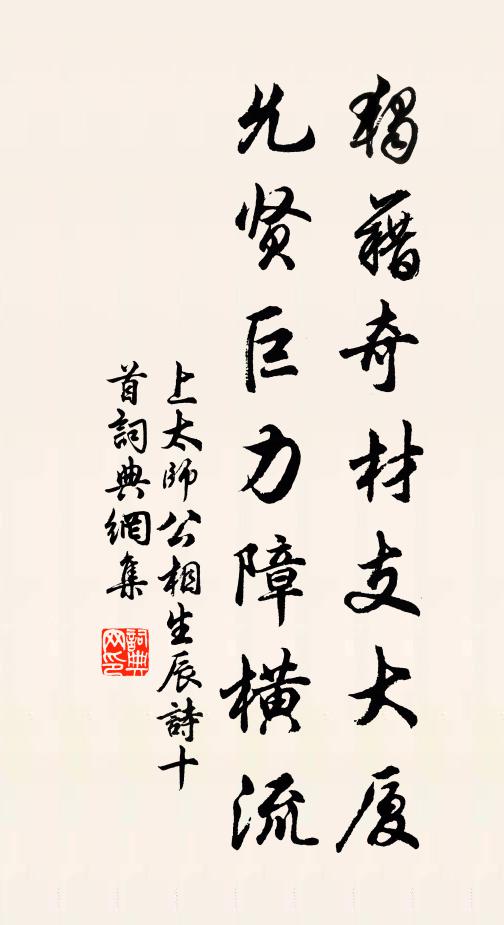 獨藉奇材支大厦
先贤巨力障橫流
上太師公相生辰詩十
首詞典網集
詞典网印